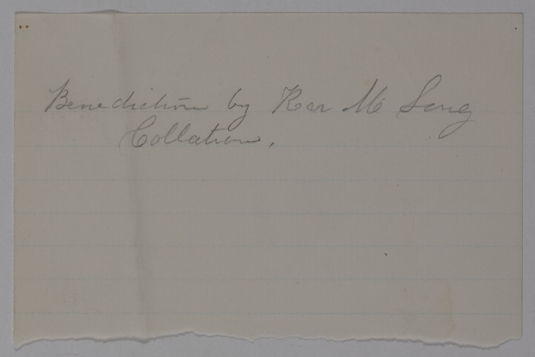 Benediction by Rev Mr Long
Collation.